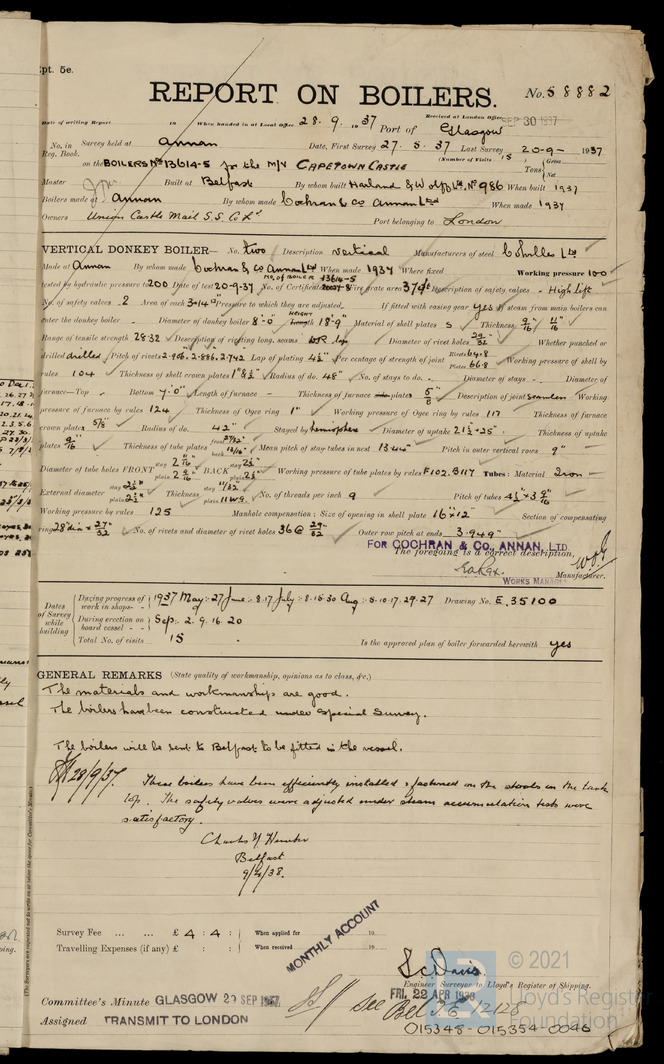 pt. 5e.
REPORT ON BOILERS.
No. 58882
Date of writing Report 19 When handed in at Local Office 28. 9. 1937 Port of Glasgow Received at London Office SEP 30 1937
No. in Reg. Book. Survey held at Annan Date, First Survey 27. 5. 37 Last Survey 20-9- 1937
(Number of Visits 15)
on the BOILERS Nos 13614-5 for the M/V CAPETOWN CASTLE Tons Gross Net
Master Built at Belfast By whom built Harland & Wolff Ld. No 986 When built 1937
Boilers made at Annan By whom made Cochran & Co Annan Ltd When made 1937
Owners Union Castle Mail S.S. Co Ld Port belonging to London
VERTICAL DONKEY BOILER— No. two Description Vertical Manufacturers of steel Colvilles Ltd
Made at Annan By whom made Cochran & Co Annan Ltd When made 1937 Where fixed Working pressure 100
No. OF BOILER 13614-5
tested by hydraulic pressure to 200 Date of test 20-9-37 No. of Certificate Fire grate area Description of safety valves - High lift
No. of safety valves 2 Area of each Pressure to which they are adjusted If fitted with easing gear yes If steam from main boilers can
enter the donkey boiler - Diameter of donkey boiler 8'-0" HEIGHT Length 18'-9" Material of shell plates S Thickness 9/16" 11/16"
Range of tensile strength 28-32 Description of riveting long. seams Lap Diameter of rivet holes 29/32 Whether punched or
drilled drilled Pitch of rivets 2.906. 2.886. 2.742 Lap of plating 4½" Per centage of strength of joint Rivets 64.8 Plates 66.8 Working pressure of shell by
rules 104 Thickness of shell crown plates Radius of do. 48" No. of stays to do. - Diameter of stays - Diameter of
furnace—Top - Bottom 7'-0" Length of furnace - Thickness of furnace plates 5/8" Description of joint seamless Working
pressure of furnace by rules 124 Thickness of Ogee ring 1" Working pressure of Ogee ring by rules 117 Thickness of furnace
crown plates 5/8" Radius of do. 42" Stayed by hemisphere Diameter of uptake Thickness of uptake
plates 9/16" Thickness of tube plates front 27/32" back Mean pitch of stay tubes in nest 13.44" Pitch in outer vertical rows 9"
Diameter of tube holes FRONT stay plain BACK stay plain Working pressure of tube plates by rules F 102. B 117 Tubes: Material Iron
External diameter stay 2½" plain 2½" Thickness stay 11/32 plain 11 WG No. of threads per inch 9 Pitch of tubes
Working pressure by rules 125 Manhole compensation: Size of opening in shell plate 16"x12" Section of compensating
ring No. of rivets and diameter of rivet holes 36 @ 29/32 Outer row pitch at ends 3.949"
FOR COCHRAN & Co. ANNAN, LTD.
The foregoing is a correct description,
WORKS MANAGER Manufacturer.
Dates of Survey while building
During progress of work in shops- - 1937 May:- 27 June:- 8.17 July:- 8.15.30 Aug:- 5.10.17.24.27 Drawing No. E.35100
During erection on board vessel - - - Sep:- 2. 9. 16. 20
Total No. of visits 15 Is the approved plan of boiler forwarded herewith yes
GENERAL REMARKS (State quality of workmanship, opinions as to class, &c.)
The materials and workmanship are good.
The boilers have been constructed under Special Survey.
The boilers will be sent to Belfast to be fitted in the vessel.
28/9/37.
These boilers have been efficiently installed & fastened on the stools on the tank
top. The safety valves were adjusted under steam accumulation tests were
satisfactory.
Belfast
9/4/38.
Survey Fee ... ... £ 4 : 4 : When applied for 19
Travelling Expenses (if any) £ : : When received 19
MONTHLY ACCOUNT
Engineer Surveyor to Lloyd's Register of Shipping.
FRI. 22 APR 1938
Committee's Minute GLASGOW 29 SEP 1937
Assigned TRANSMIT TO LONDON
See Bel
015348-015354-0046
© 2021
Lloyd's Register
Foundation